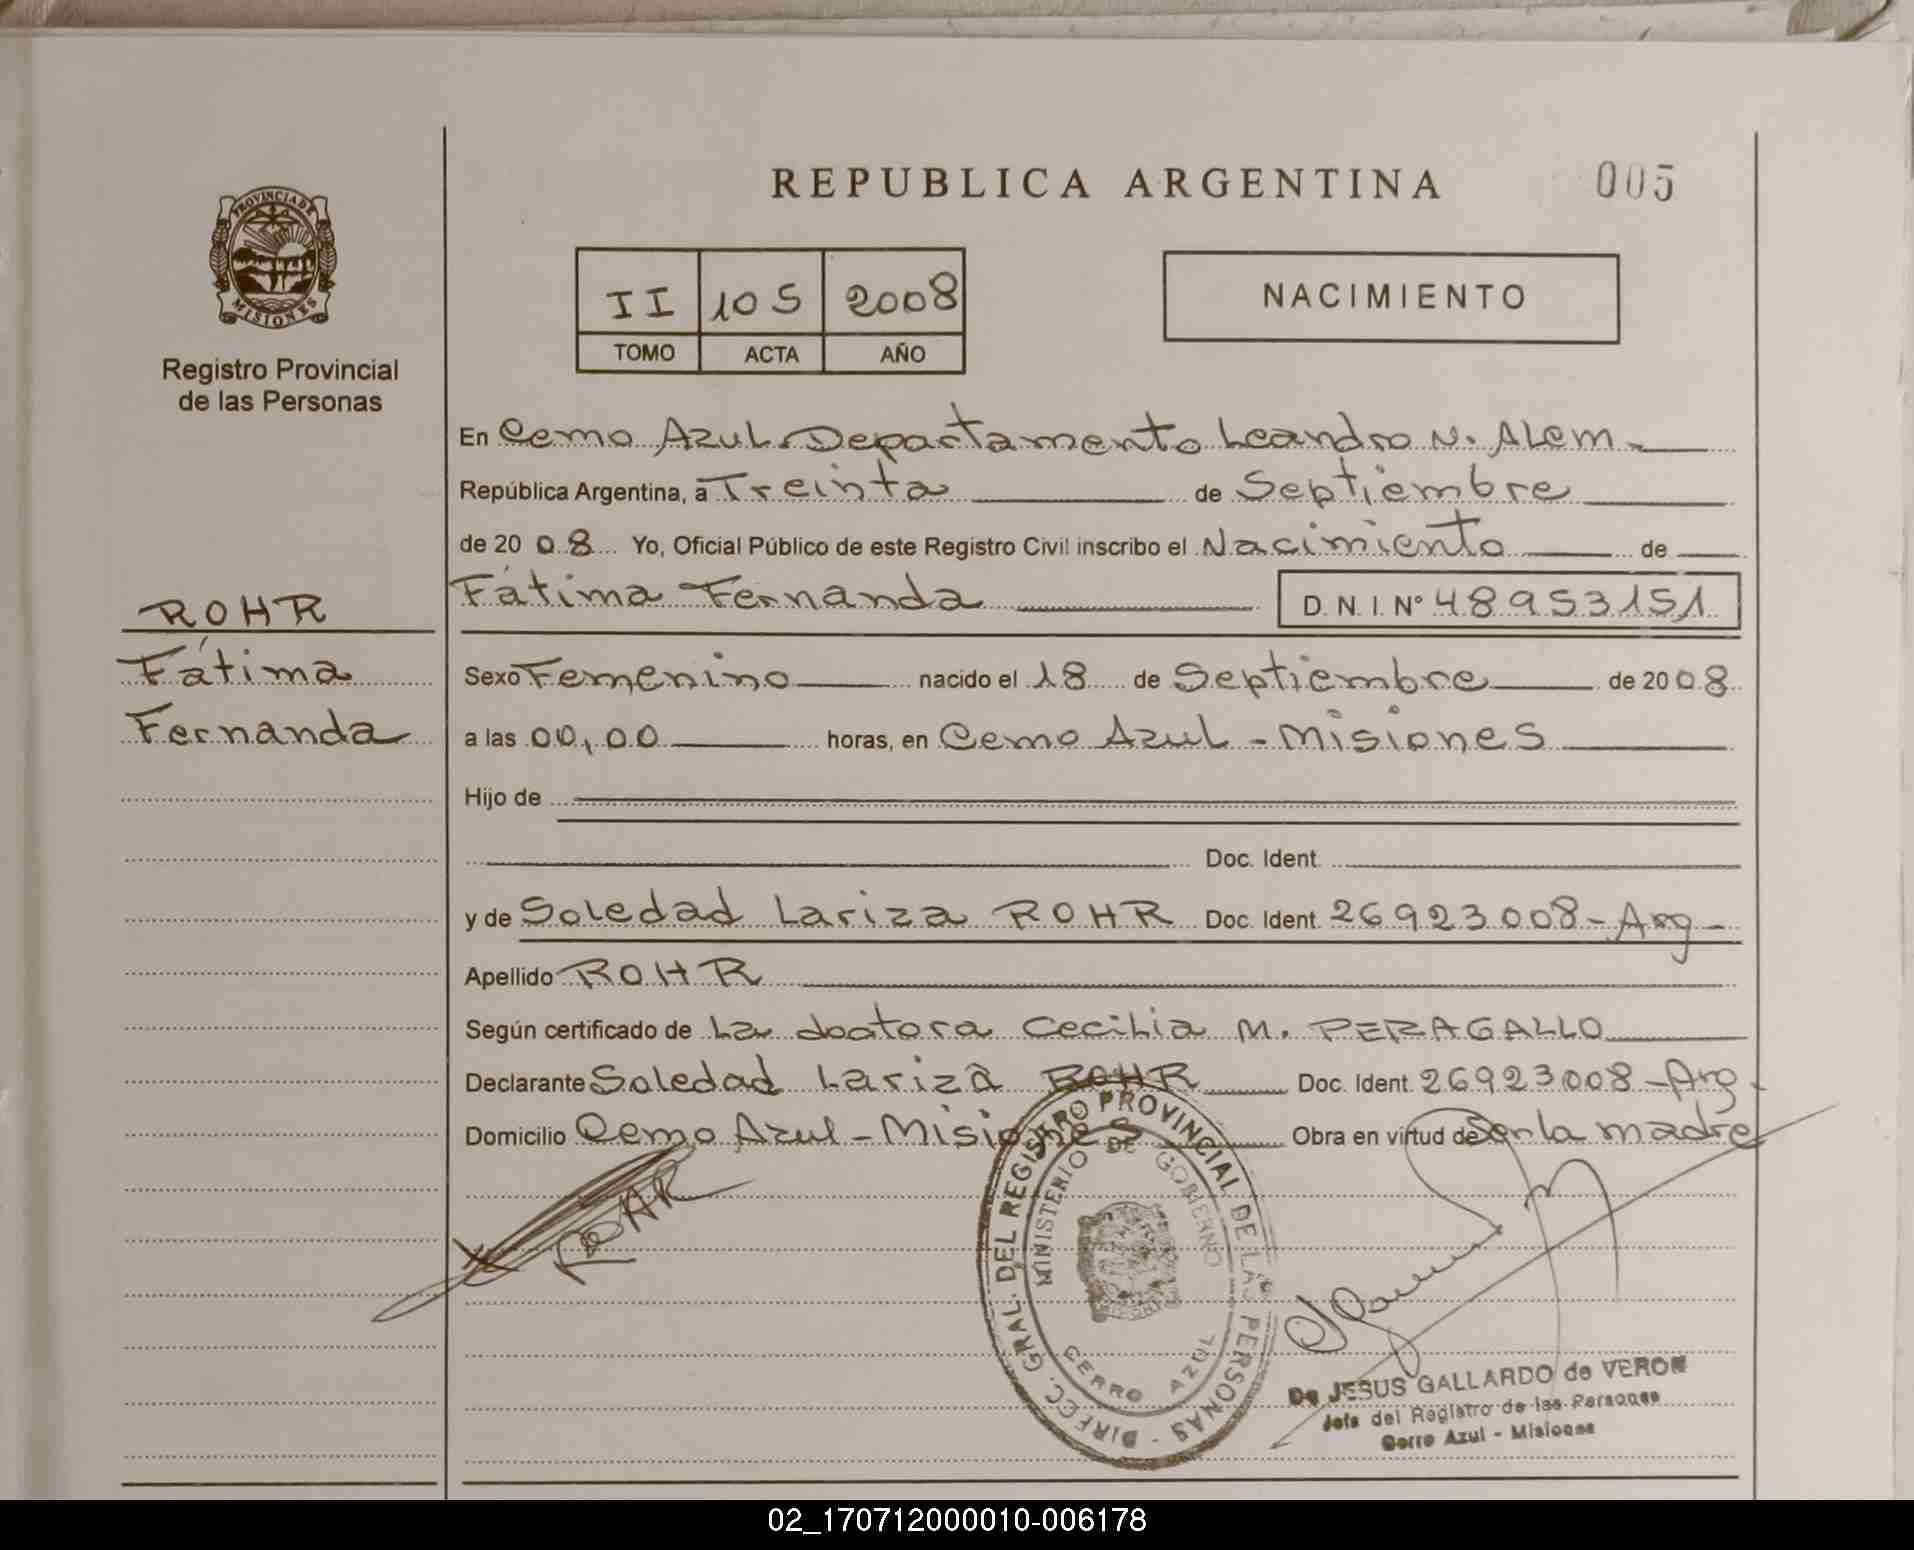 REPUBLICA ARGENTINA
005
PROVINCIA DE
MISIONES
Registro Provincial
de las Personas
II 105 2008
TOMO ACTA AÑO
NACIMIENTO
En Cerro Azul Departamento Leandro N. Alem
República Argentina, a Treinta de Septiembre
de 2008 Yo, Oficial Público de este Registro Civil inscribo el Nacimiento de
Fátima Fernanda D.N.I.Nº 48953151
ROHR
Fátima
Fernanda
Sexo Femenino nacido el 18 de Septiembre de 2008
a las 00,00 horas, en Cerro Azul - Misiones
Hijo de
Doc. Ident.
y de Soledad Lariza ROHR Doc. Ident. 26923008 - Arg -
Apellido ROHR
Según certificado de La doctora Cecilia M. PERAGALLO
Declarante Soledad Lariza ROHR Doc. Ident. 26923008 - Arg.
Domicilio Cerro Azul - Misiones Obra en virtud de Ser la madre
X ROHR
DIRECC. GRAL. DEL REGISTRO PROVINCIAL DE LAS PERSONAS -
MINISTERIO DE GOBIERNO
CERRO AZUL
De JESUS GALLARDO de VERON
Jefa del Registro de las Personas
Cerro Azul - Misiones
02_170712000010-006178